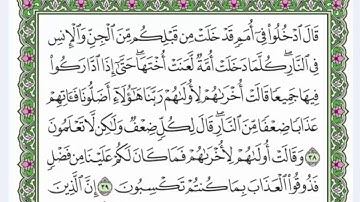 قَالَ ٱدْخُلُوا۟ فِىٓ أُمَمٍ قَدْ خَلَتْ مِن قَبْلِكُم مِّنَ ٱلْجِنِّ وَٱلْإِنسِ
فِى ٱلنَّارِ ۖ كُلَّمَا دَخَلَتْ أُمَّةٌ لَّعَنَتْ أُخْتَهَا ۖ حَتَّىٰٓ إِذَا ٱدَّارَكُوا۟
فِيهَا جَمِيعًا قَالَتْ أُخْرَىٰهُمْ لِأُولَىٰهُمْ رَبَّنَا هَـٰٓؤُلَآءِ أَضَلُّونَا فَـَٔاتِهِمْ
عَذَابًا ضِعْفًا مِّنَ ٱلنَّارِ ۖ قَالَ لِكُلٍّ ضِعْفٌ وَلَـٰكِن لَّا تَعْلَمُونَ
٣٨ وَقَالَتْ أُولَىٰهُمْ لِأُخْرَىٰهُمْ فَمَا كَانَ لَكُمْ عَلَيْنَا مِن فَضْلٍ
فَذُوقُوا۟ ٱلْعَذَابَ بِمَا كُنتُمْ تَكْسِبُونَ ٣٩ إِنَّ ٱلَّذِينَ